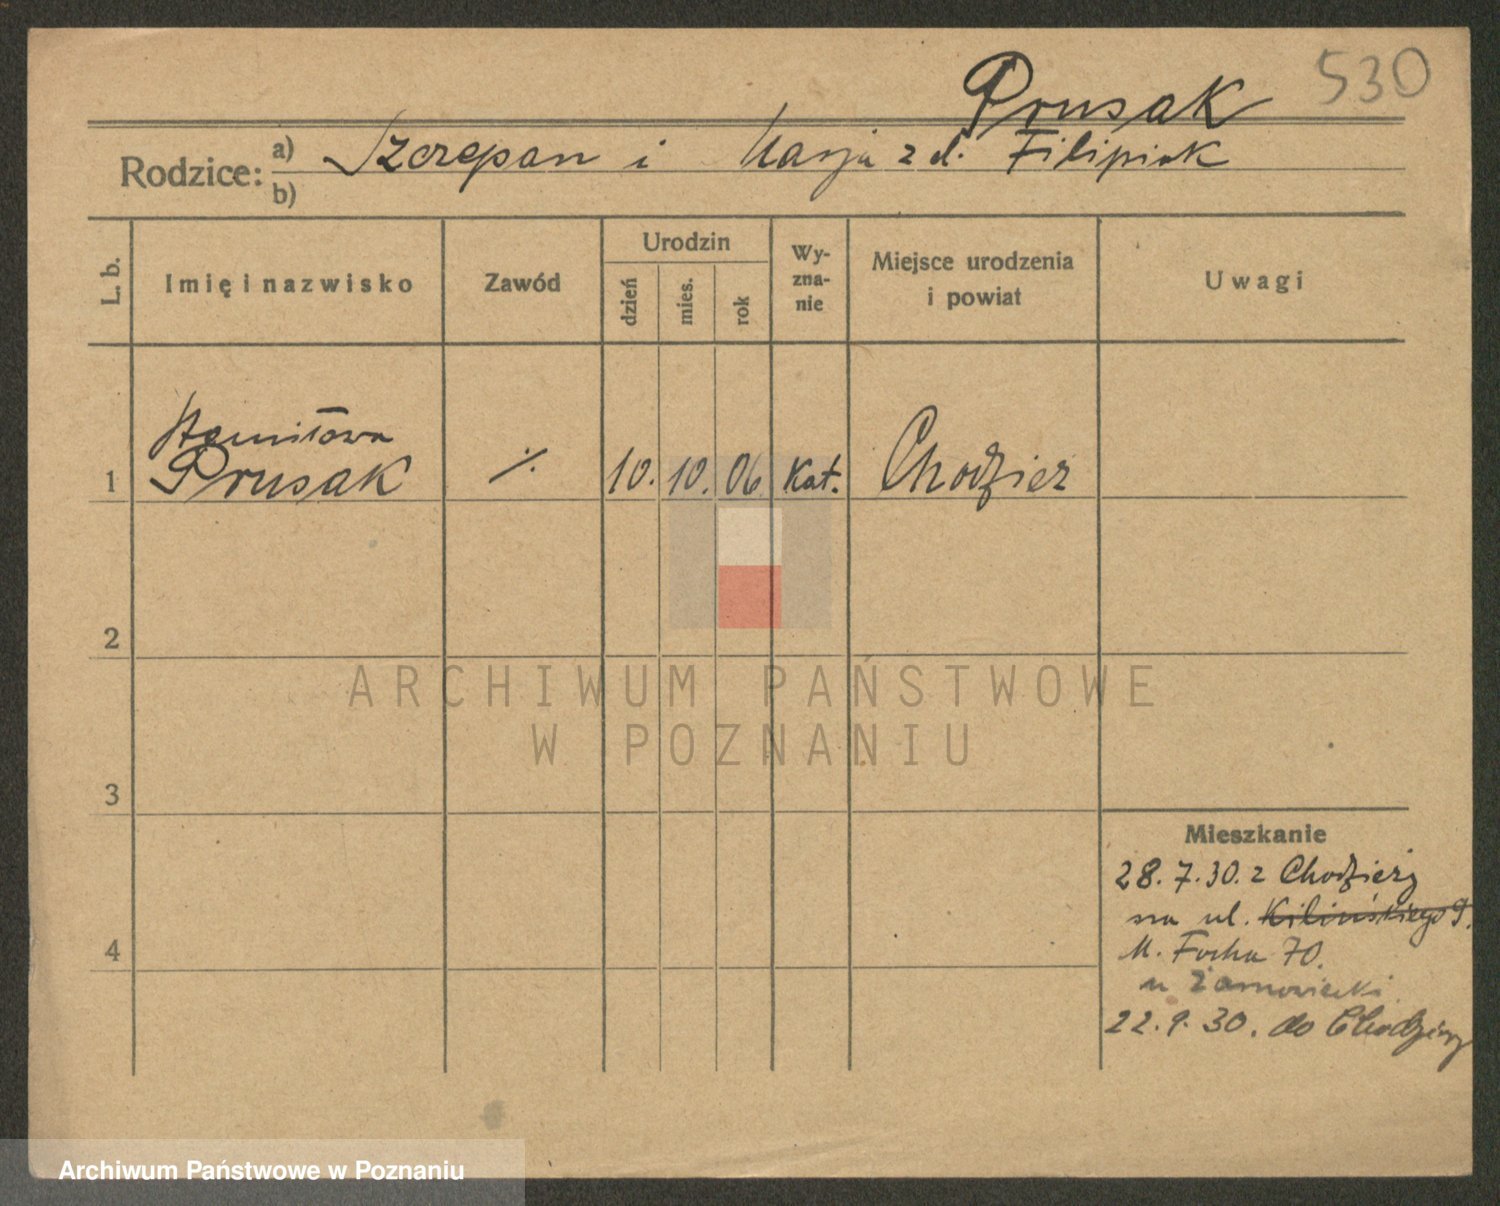 530
Prusak
Rodzice: a) Szczepan i Marja z d. Filipiak
b)
L. b.
Imię i nazwisko
Zawód
Urodzin
dzień
mies.
rok
Wy-
zna-
nie
Miejsce urodzenia
i powiat
Uwagi
Stanisława
1 Prusak % 10. 10. 06 kat. Chodzież
2
3
4
Mieszkanie
28. 7. 30. z Chodzieży
na ul. Kilińskiego 9.
M. Focha 70.
u
22. 9. 30. do Chodzieży
ARCHIWUM PAŃSTWOWE
W POZNANIU
Archiwum Państwowe w Poznaniu